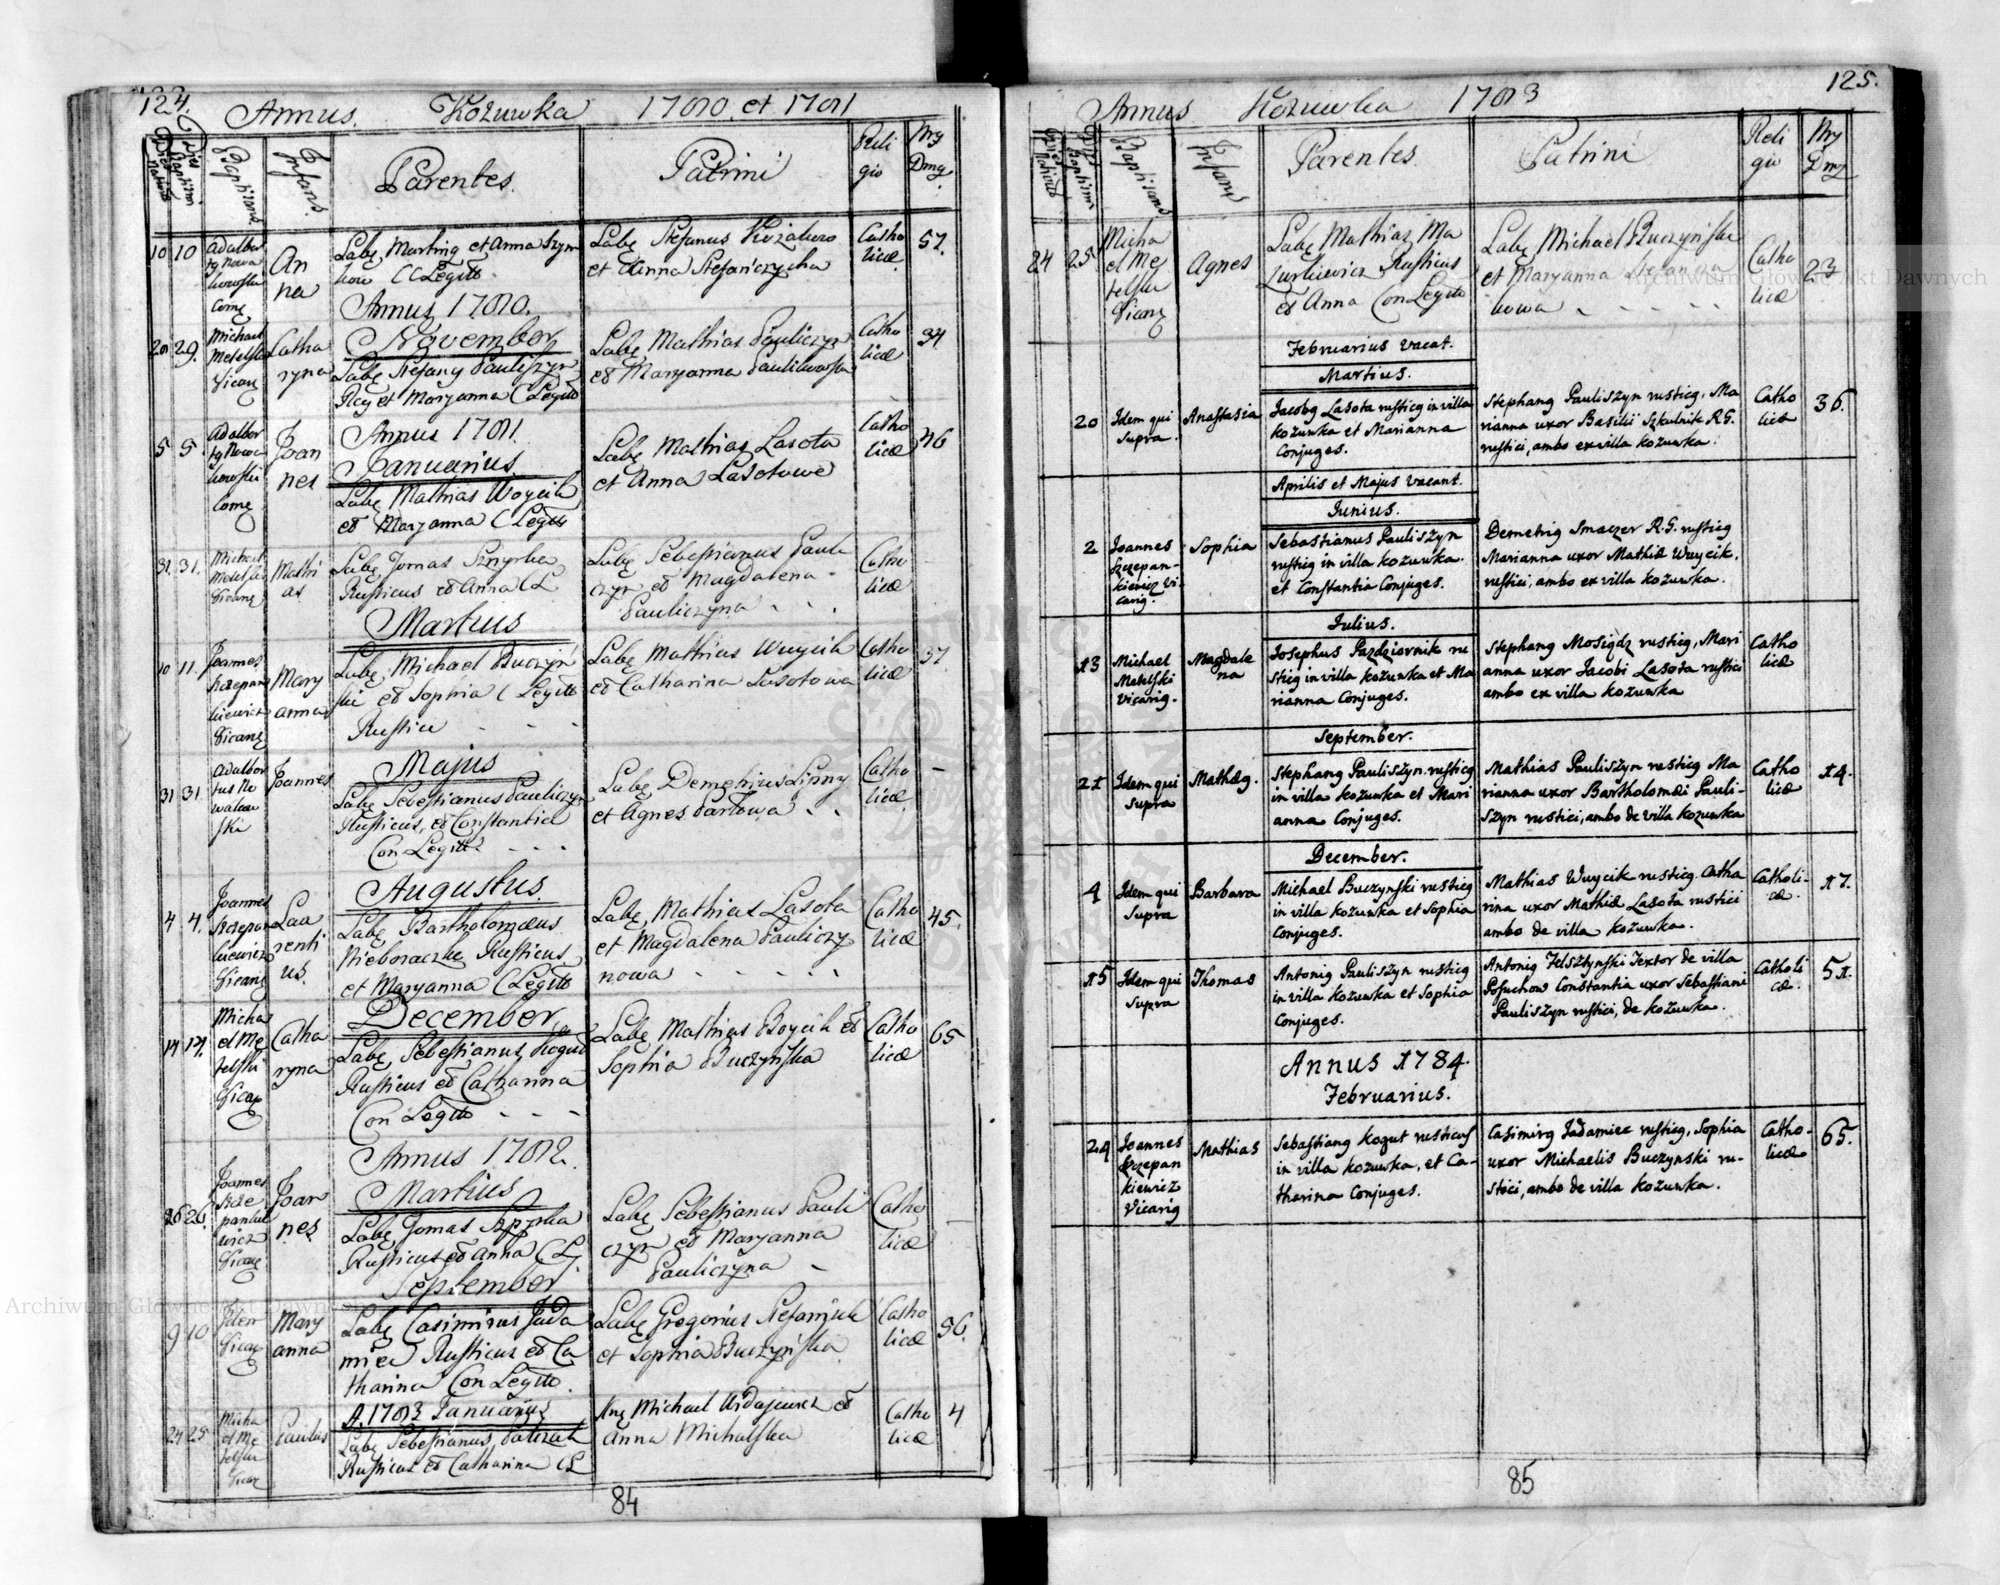 124.
Annus. Kożuwka 1780. et 1781
Dies
Baptismi
Baptisans
Infans.
Parentes.
Patrini
Reli
gio
Nrg
Dmg
10 10
Adalber
Comg
An
na
Labg Marting et Anna Szym
kow CC Legitt.
Labg Stefanus Kozakow
et Anna Stefańczycha
Catho
licæ
57.
Annus 1780.
November
29.
Michael
Metelski
Vicarg
Catha
ryna
Labg Stefang Pauliszyn
Rcg et Maryanna C Legitt
Labg Mathias Pauliczyn
et Maryanna Paulikowska
Catho
licæ
34
Annus 1781.
Januarius.
5 5.
Adalber
tg Nowa
kowski
Comg
Joan
nes
Labg Mathias Woycik
et Maryanna C Legitt
Labg Mathias Lasota
et Anna Lasotowe
Catho
licæ
46
31. 31.
Michael
Metelski
Vicarg
Mathi
as
Labg Tomas Szpyrka
Rusticus et Anna C L
Labg Sebestianus Pauli
czyn et Magdalena
Pauliczyna
Catho
licæ
Martius
10 11.
Joannes
Szczepan
kiewicz
Vicarg
Mary
anna
Labg Michael Buczyń
ski et Sophia C Legitt
Rustici
Labg Mathias Wuycik
et Catharina Lasotowa
Catho
licæ
37
Majus
31 31
Adalber
tus No
wakow
ski
Joannes
Labg Sebestianus Pauliczyn
Rusticus, et Constantia
Con Legitt.
Labg Demetrius Linny
et Agnes Partowa
Catho
licæ
Augustus.
4 4.
Joannes
Szczepan
kiewicz
Vicarg
Lau
renti
us.
Labg Bartholomæus
Nieboraczek Rusticus
et Maryanna C Legitt
Labg Mathias Lasota
et Magdalena Pauliczy
nowa
Catho
licæ
45.
December
14 14.
Micha
el Me
telski
Vicarg
Catha
ryna
Labg Sebestianus Kogut
Rusticus et Catharina
Con Legitt
Labg Mathias Woycik et
Sophia Buczyńska
Catho
licæ
65
Annus 1782.
Martius
26 26.
Joannes
Szcze
pankie
wicz
Vicarg
Joan
nes
Labg Tomas Szpyrka
Rusticus et Anna C L
Labg Sebestianus Pauli
czyn et Maryanna
Pauliczyna
Catho
licæ
September
9 10
Idem
Vicarg
Mary
anna
Labg Casimirus Jada
miec Rusticus et Ca
tharina Con Legitt.
Labg Gregorius Stefaniuk
et Sophia Buczyńska
Catho
licæ
36.
A. 1783 Januarius
24 25
Micha
el Me
telski
Vicarg
Paulus
Labg Sebestianus
Rusticus et Catharina C L
Michael et
Anna Michalska
Catho
licæ
4
84
125.
Annus Kożuwka 1783
Baptismi
Baptisans
Infans
Parentes.
Patrini
Reli
gio
Nrg
Dmg
24 25.
Micha
el Me
telski
Vicarg
Agnes
Labg Mathias Ma
zurkiewicz Rusticus
et Anna Con Legitt
Labg Michael Buczyński
et Maryanna
kowa
Catho
licæ
23
Archiwum Główne Akt Dawnych
Februarius vacat.
Martius.
20
Idem qui
supra.
Anastasia
Jacobg Lasota rusticg in villa
Kożuwka et Marianna
Conjuges.
Stephang Pauliszyn rusticg, Ma
rianna uxor Basilii Szkulnik R.G.
rustici, ambo ex villa Kożuwka.
Catho
licæ
36.
Aprilis et Majus vacant.
Iunius.
2
Joannes
Szczepan-
kiewicz Vi-
carig.
Sophia
Sebastianus Pauliszyn
rusticg in villa Kożuwka
et Constantia Conjuges.
Demetrig Smaczer R.G. rusticg
Marianna uxor Mathiæ Wuycik,
rustici, ambo ex villa Kożuwka.
Iulius.
13
Michael
Metelski
Vicarig.
Magdale
na
Josephus Pazdziornik ru
sticg in villa Kożuwka et Ma
rianna Conjuges.
Stephang Mosigdz rusticg, Mari
anna uxor Jacobi Lasota rustici
ambo ex villa Kożuwka
Catho
licæ
September.
21
Idem qui
supra
Mathæg.
Stephang Pauliszyn rusticg
in villa Kożuwka et Mari
anna Conjuges.
Mathias Pauliszyn rusticg Ma
rianna uxor Bartholomæi Pauli-
szyn rustici, ambo de villa Kożuwka
Catho
licæ
14.
December.
4
Idem qui
supra
Barbara
Michael Buczynski rusticg
in villa Kożuwka et Sophia
Conjuges.
Mathias Wuycik rusticg. Catha
rina uxor Mathiæ Lasota rustici
ambo de villa Kożuwka.
Catholi-
cæ.
17.
15
Idem qui
supra
Thomas
Antonig Pauliszyn rusticg
in villa Kożuwka et Sophia
Conjuges.
Antonig Felsztynski Textor de villa
Posuchow Constantia uxor Sebastiani
Pauliszyn rustici, de Kożuwka.
Catholi
cæ.
51.
Annus 1784.
Februarius.
24
Joannes
Szczepan
kiewicz
Vicarig
Mathias
Sebastiang Kogut rusticus
in villa Kożuwka, et Ca-
tharina Conjuges.
Casimirg Jadamiec rusticg, Sophia
uxor Michaelis Buczynski ru-
stici, ambo de villa Kożuwka.
Catho-
licæ
65.
Archiwum Główne Akt Dawnych
85